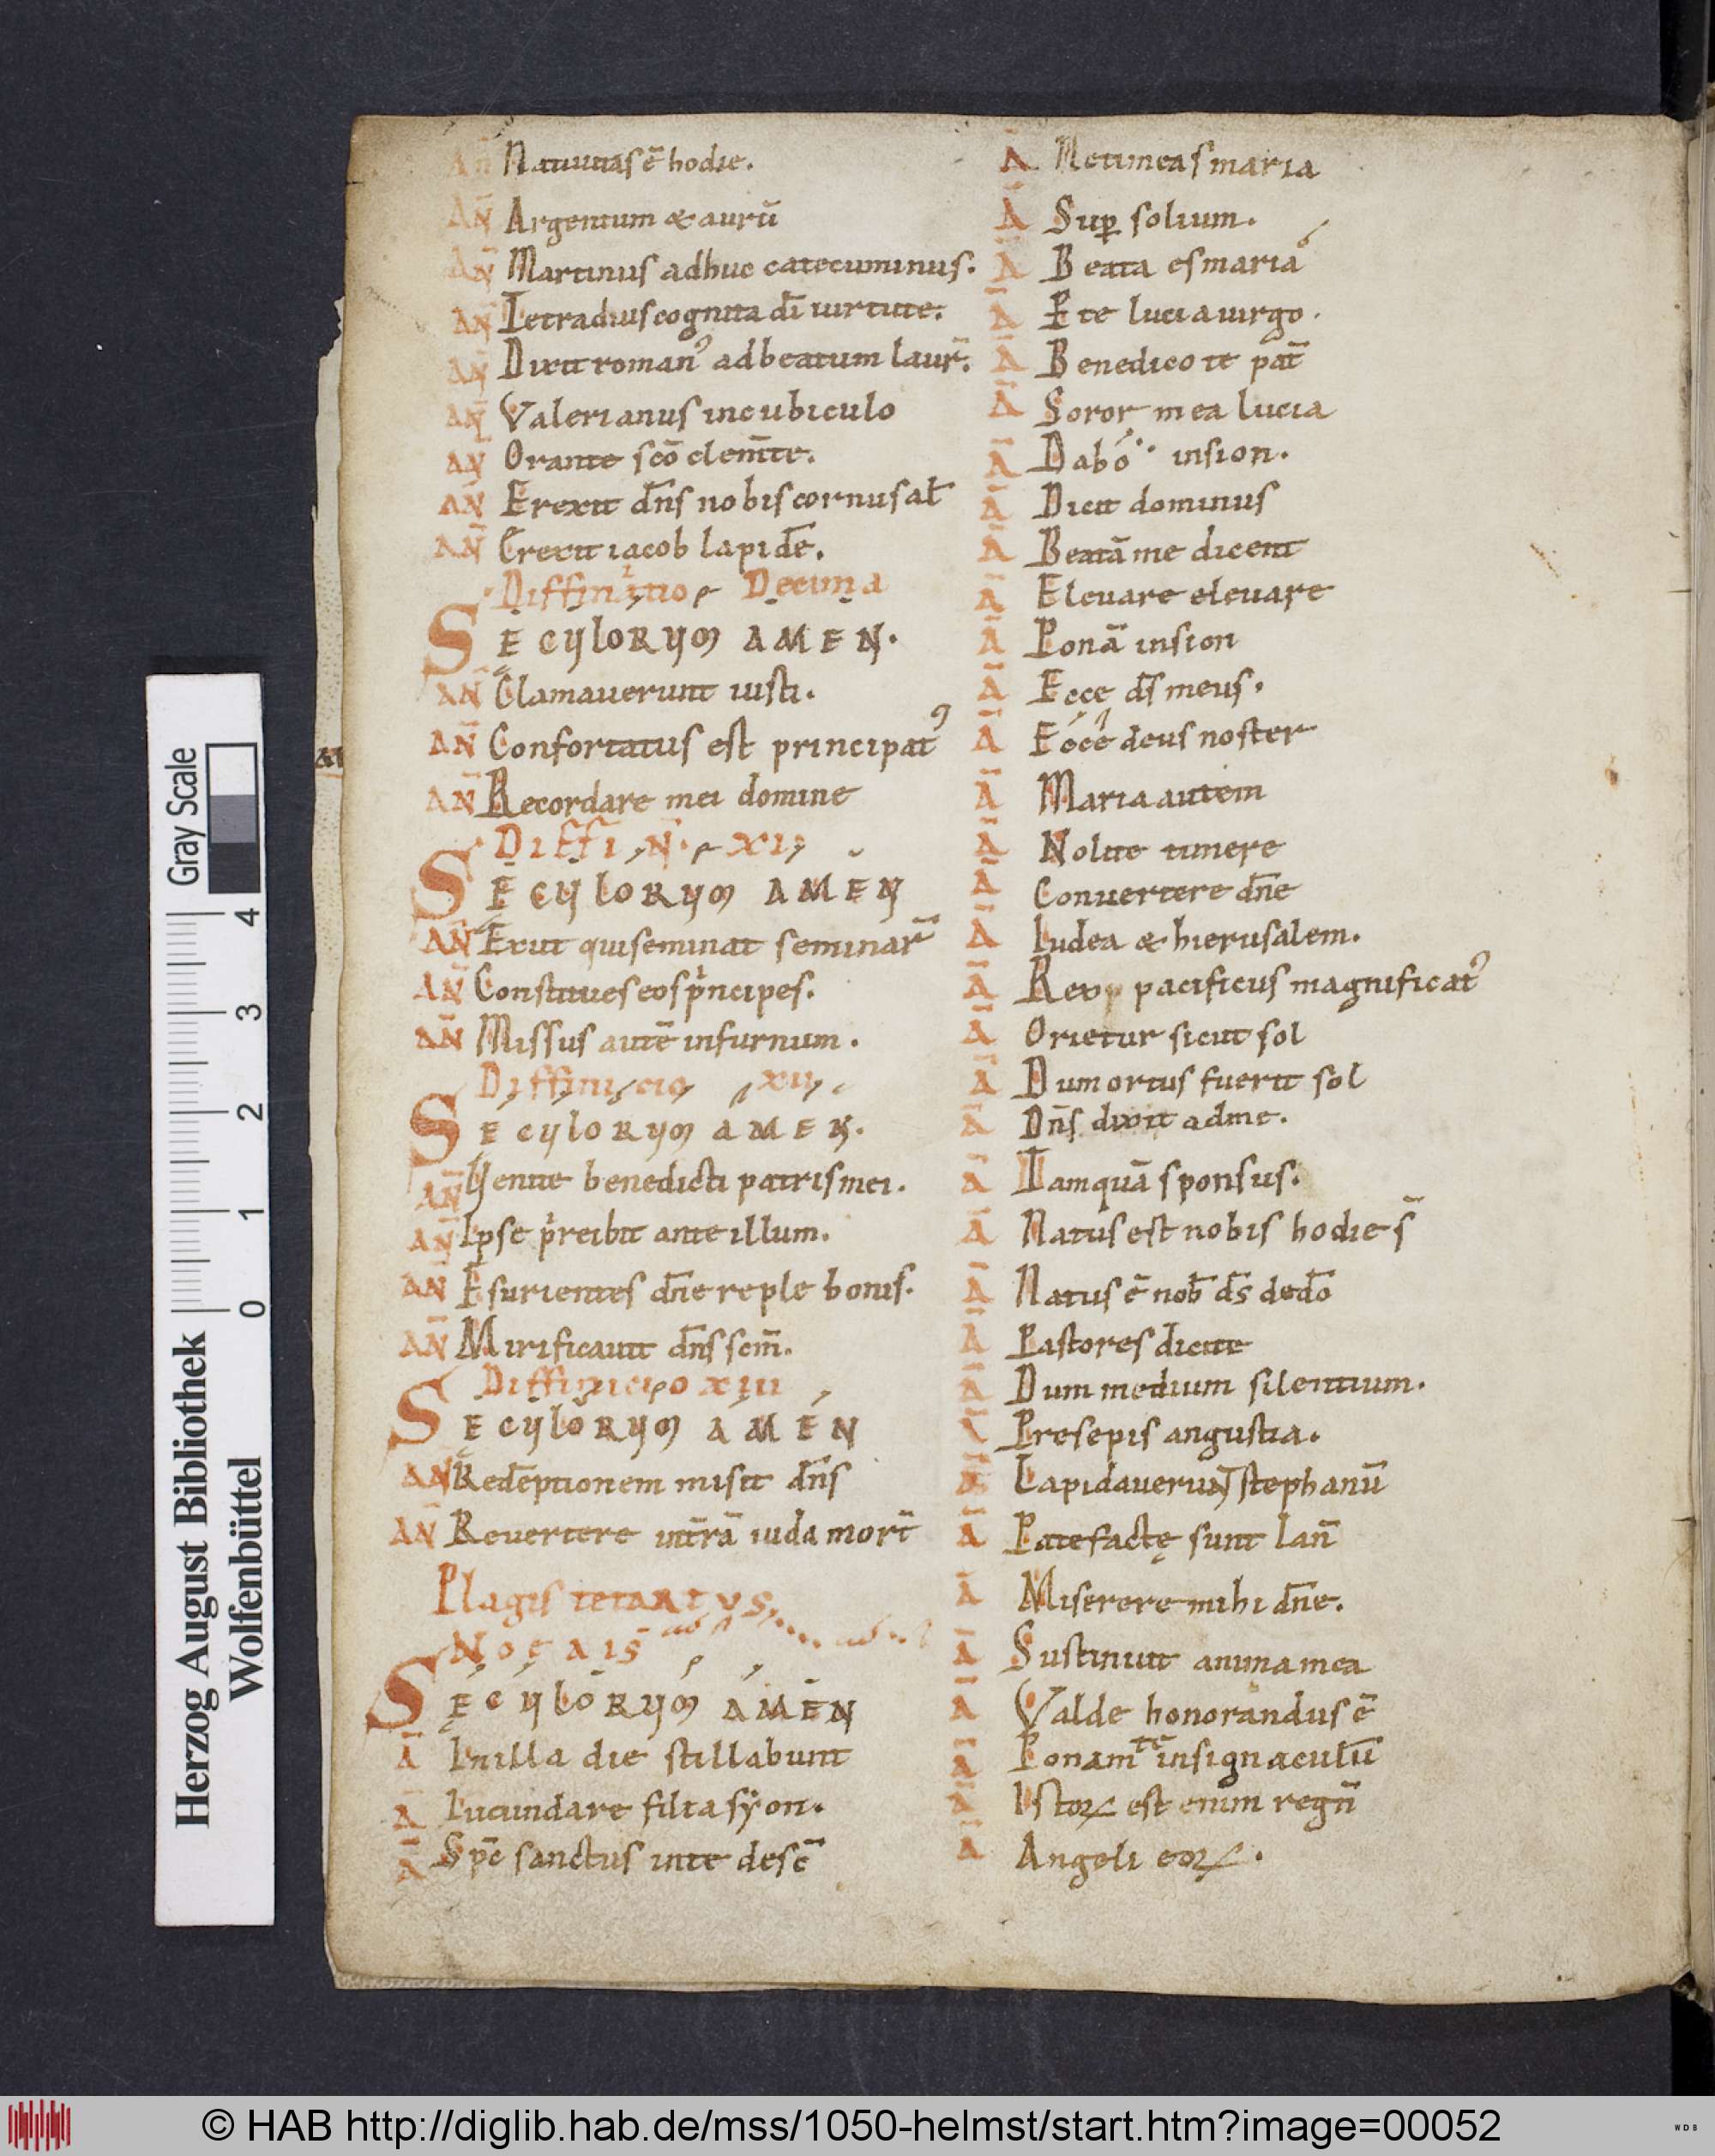 AN̄ Natiuitas ē hodie.
AN̄ Argentum & aurū
AN̄ Martinus adhuc catecuminus.
AN̄ Tetradius cognita dī uirtute.
AN̄ Dixit romanꝰ ad beatum laur̄.
AN̄ Valerianus in cubiculo
AN̄ Orante sc̄o clem̄te.
AN̄ Erexit dn̄s nobis cornu sal̄
AN̄ Erexit iacob lapidē.
Diffinitio Decima
SECULORUM AMEN.
AN̄ Clamauerunt iusti.
AN̄ Confortatus est principatꝰ
AN̄ Recordare mei domine
Diffin̄. XI
SECULORUM AMEN
AN̄ Exiit qui seminat seminar̄
AN̄ Constitues eos pͥncipes.
AN̄ Missus autē infurnum.
Diffinicio XII
SECULORUM AMEN.
AN̄ Uenite benedicti patris mei.
AN̄ Ipse pͥreibit ante illum.
AN̄ Esurientes dn̄e reple bonis.
AN̄ Mirificauit dn̄s scm̄.
Diffinicio XIII
SECULORUM AMEN
AN̄ Redēptionem misit dn̄s
AN̄ Reuertere in tr̄ā iuda mort̄
Plagis tetartus
Noeais
SECULORUM AMEN
Ā In illa die stillabunt
Ā Iucundare filia syon.
Ā Spc̄ sanctus in te desc̄
Ā Ne timeas maria
Ā Suꝑ solium.
Ā Beata es maria
Ā P te lucia uirgo.
Ā Benedico te pat̄
Ā Soror mea lucia
Ā Dabo in sion.
Ā Dicit dominus
Ā Beatā me dicent
Ā Eleuare eleuare
Ā Ponā in sion
Ā Ecce ds̄ meus.
Ā Ecce deus noster
Ā Maria autem
Ā Nolite timere
Ā Conuertere dn̄e
Ā Iudea & hierusalem.
Ā Rex pacificus magnificatꝰ
Ā Orietur sicut sol
Ā Dum ortus fuerit sol
Ā Dn̄s dixit ad me.
Ā Tamquā sponsus.
Ā Natus est nobis hodie s̄
Ā Natus ē nob̄ ds̄ de dō
Ā Pastores dicite
Ā Dum medium silentium.
Ā Presepis angustia.
Ā Lapidauerunt stephanū
Ā Patefactę sunt Ian̄
Ā Miserere mihi dn̄e.
Ā Sustinuit anima mea
Ā Valde honorandus ē
Ā Ponam te insignaculū
Ā Istoꝝ est enim regn̄
Ā Angeli eoꝝ.
Gray Scale
4 3 2 1 0
Herzog August Bibliothek
Wolfenbüttel
© HAB http://diglib.hab.de/mss/1050-helmst/start.htm?image=00052
WDB